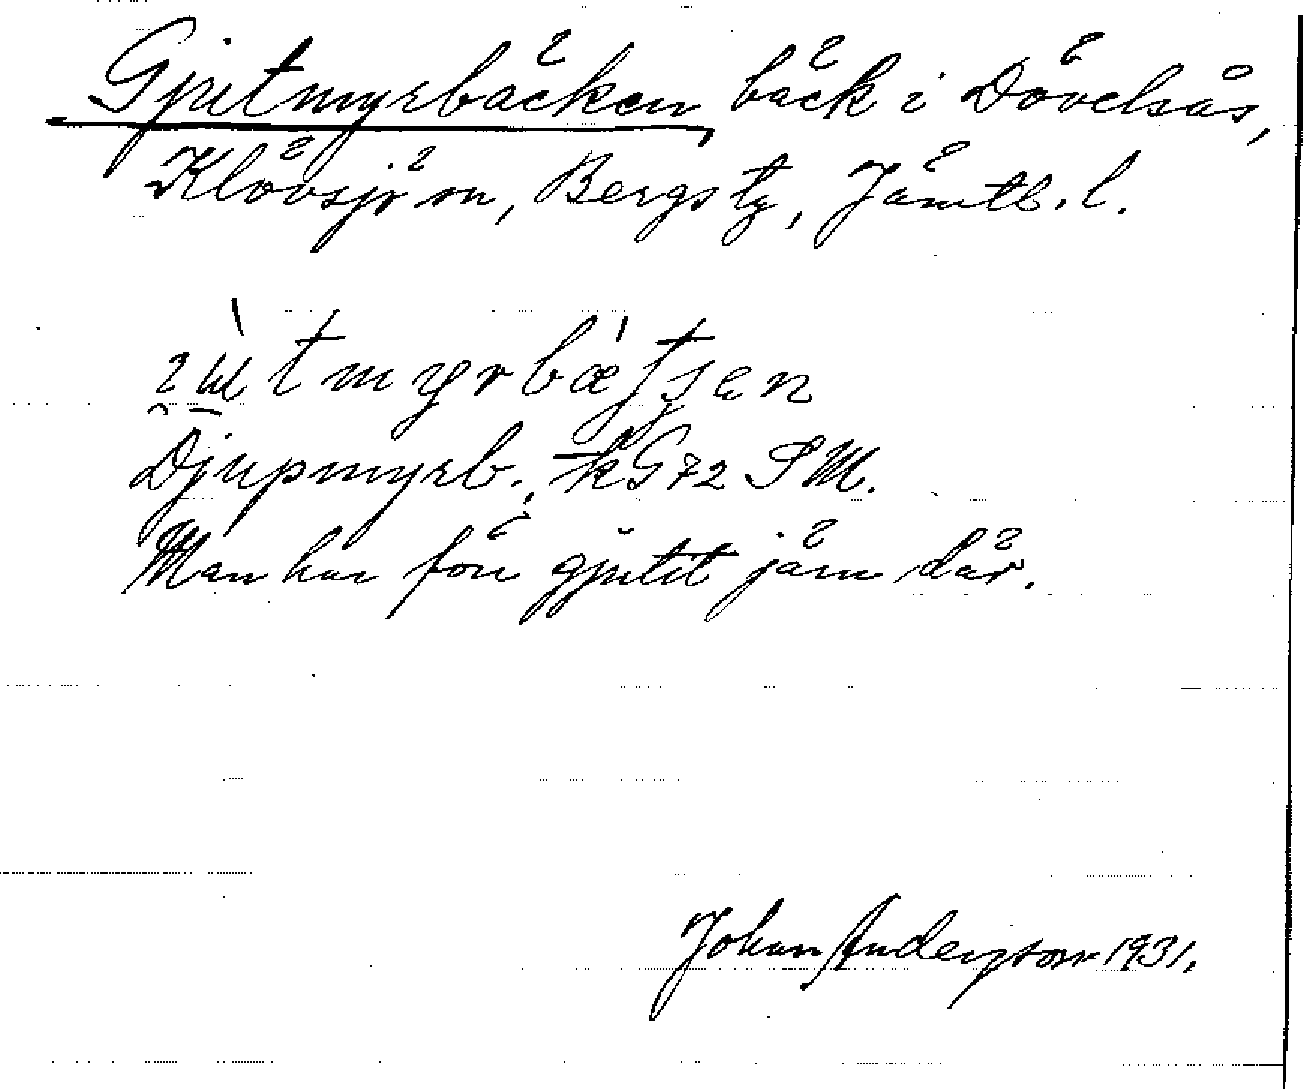 Gjutmyrbäcken, bäck i Dövelsås,
Klövsjö sn, Bergs tg, Jämtl. l.
Djupmyrb., kG72 SM.
Man har förr gjutit järn där.
Johan Andersson 1931.